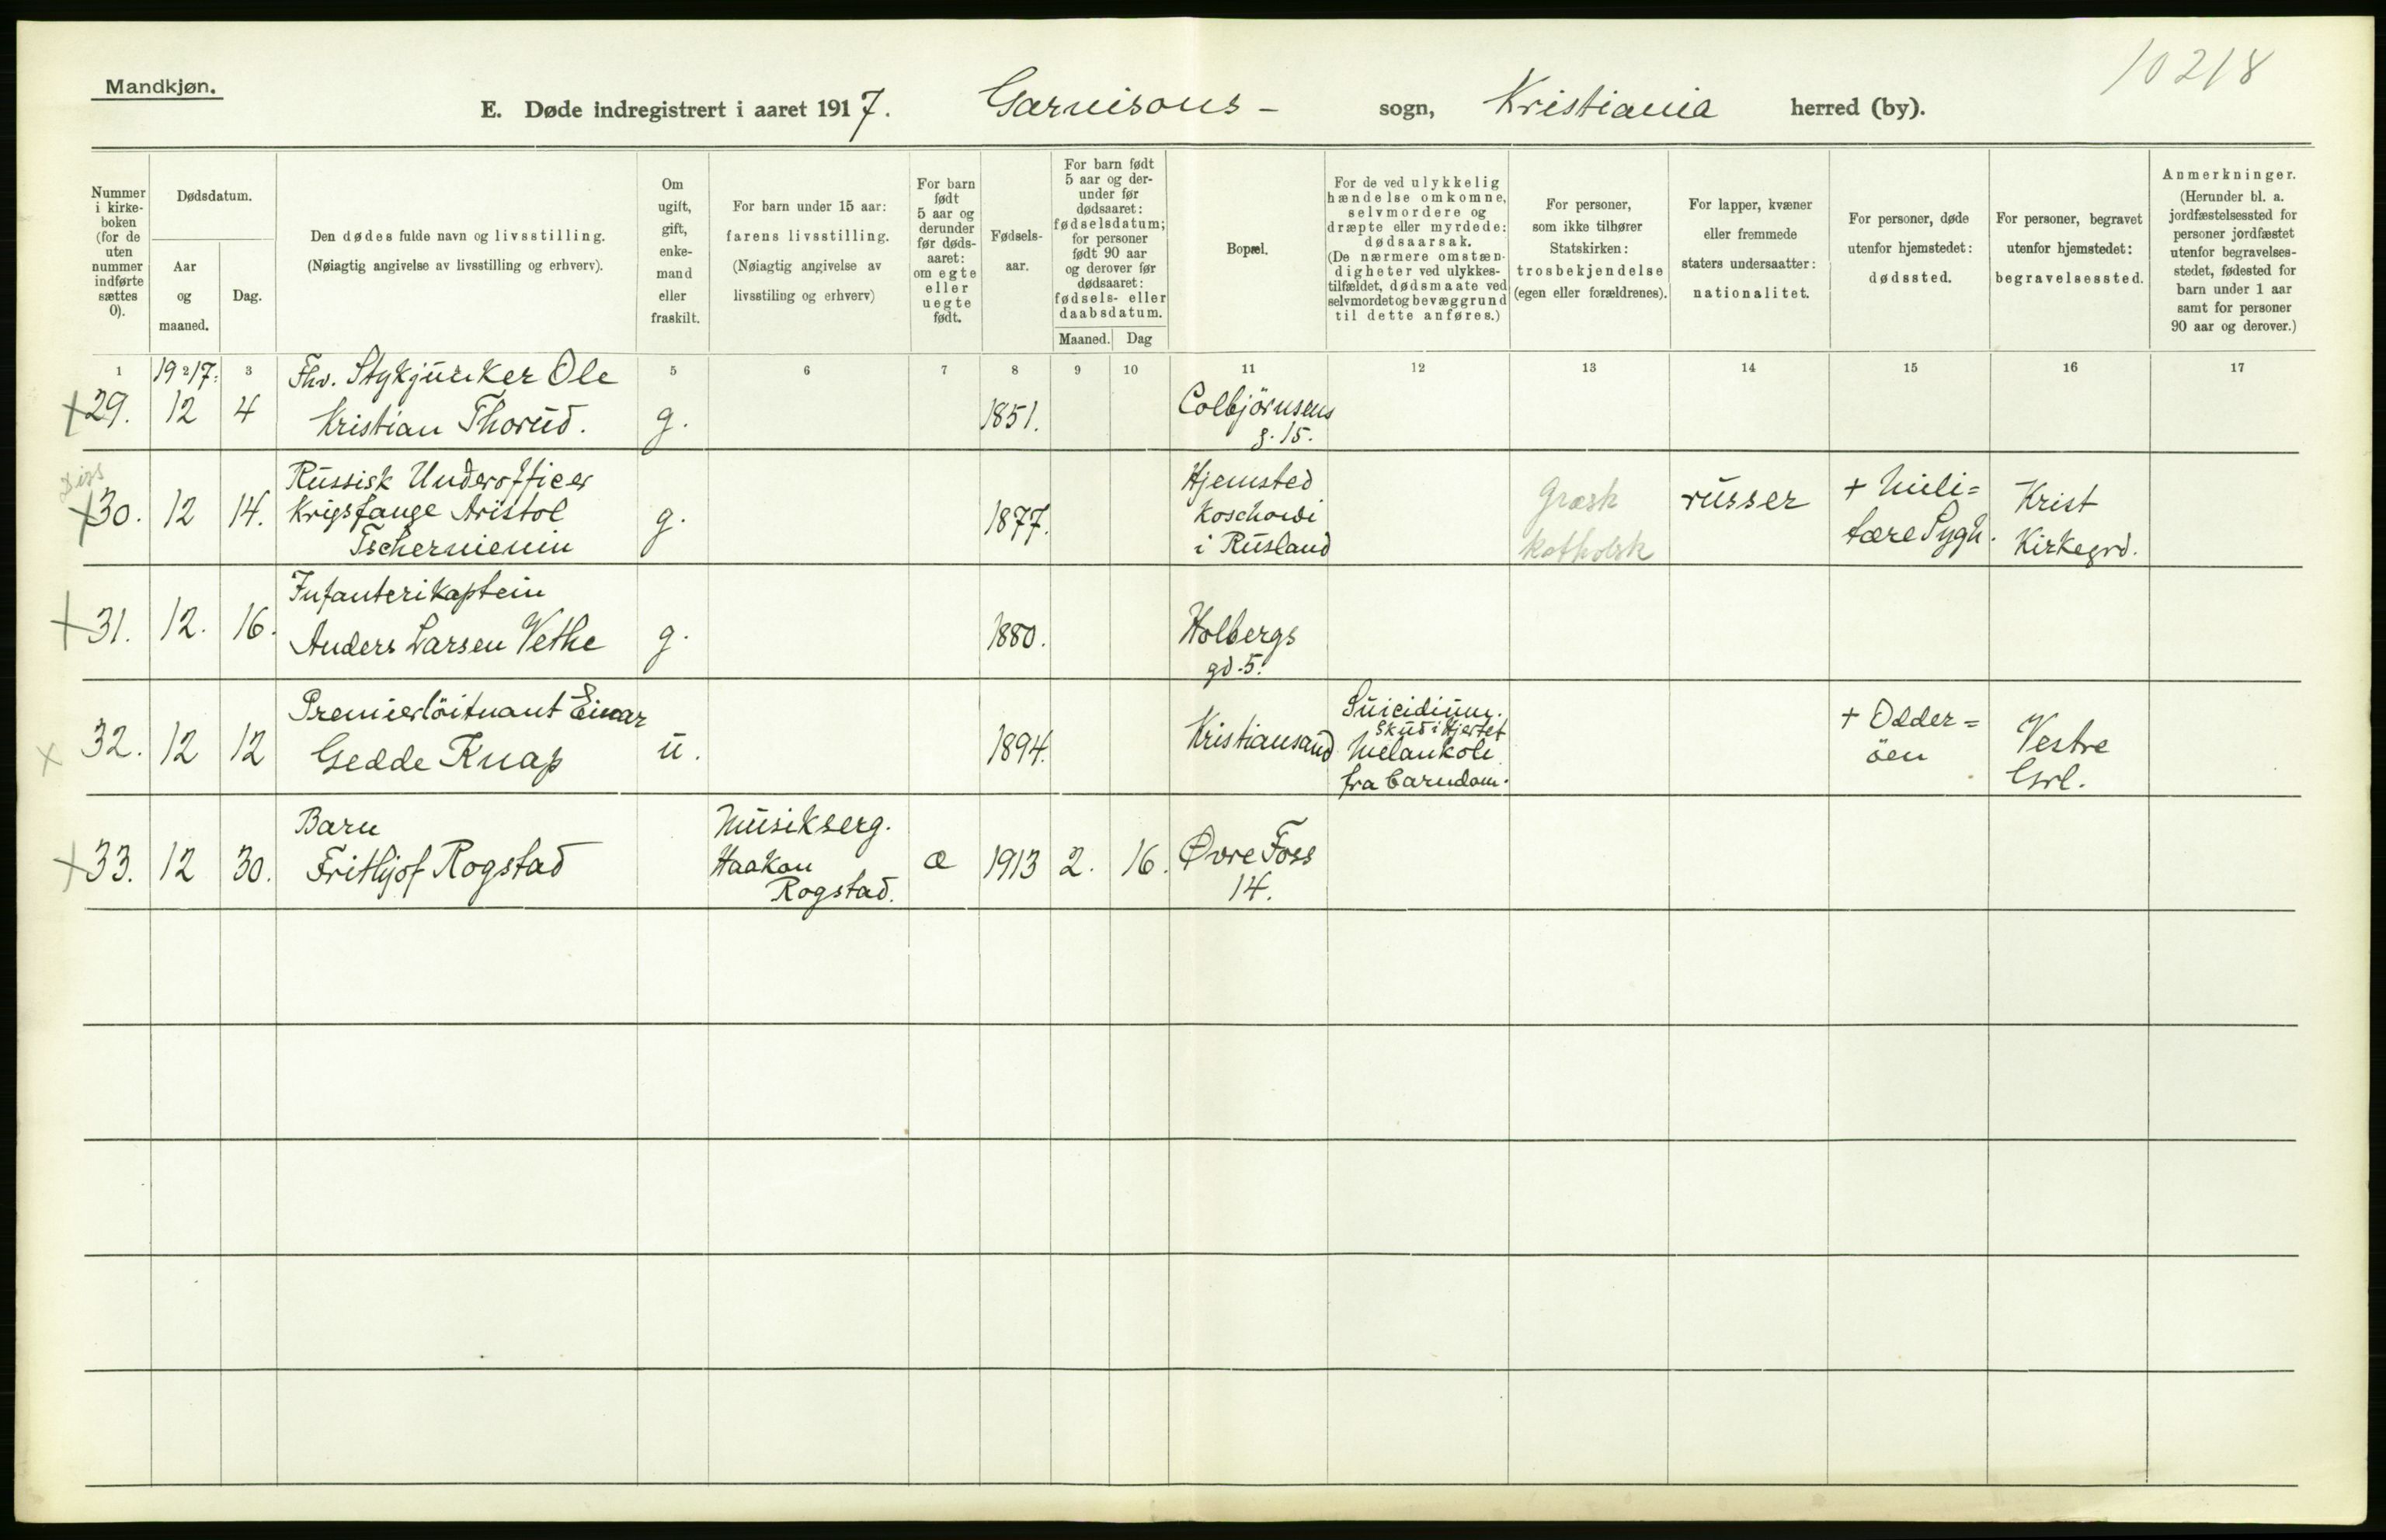 10218
Mandkjøn.
E. Døde indregistrert i aaret 1917. Garnisons- sogn, Kristiania herred (by).
Nummer i kirkeboken (for de uten nummer indførte sættes 0).
Dødsdatum.
Aar og maaned.
Dag.
Den dødes fulde navn og livsstilling.
(Nøiagtig angivelse av livsstilling og erhverv).
Om ugift, gift, enkemand eller fraskilt.
For barn under 15 aar:
farens livsstilling.
(Nøiagtig angivelse av
livsstiling og erhverv)
For barn født 5 aar og derunder før dødsaaret: om egte eller uegte født.
Fødselsaar.
For barn født 5 aar og derunder før dødsaaret: fødselsdatum; for personer født 90 aar og derover før dødsaaret: fødsels- eller daabsdatum.
Maaned. Dag
Bopæl.
For de ved ulykkelig hændelse omkomne, selvmordere og dræpte eller myrdede: dødsaarsak.
(De nærmere omstændigheter ved ulykkestilfældet, dødsmaate ved selvmordet og bevæggrund til dette anføres.)
For personer, som ikke tilhører Statskirken: trosbekjendelse (egen eller forældrenes).
For lapper, kvæner eller fremmede staters undersaatter: nationalitet.
For personer, døde utenfor hjemstedet: dødssted.
For personer, begravet utenfor hjemstedet: begravelsessted.
Anmerkninger.
(Herunder bl. a. jordfæstelsessted for personer jordfæstet utenfor begravelsesstedet, fødested for barn under 1 aar samt for personer 90 aar og derover.)
1 2 3 5 6 7 8 9 10 11 12 13 14 15 16 17
1917:
+29. 12 4 Fhv. Stykjunker Ole
Kristian Thorud. g. 1851. Colbjörnsens
g. 15.
+30. 12 14. Russisk Underofficer
Krigsfange Aristol
Tschernienin g. 1877. Hjemsted
Koschowi
i Rusland
Græsk
katholsk
russer
+ Mili=
tære Sygh.
Krist
Kirkegrd.
+31. 12. 16. Infanterikaptein
Anders Larsen Vethe g. 1880. Holbergs
gd. 5.
x 32. 12 12 Premierlöitnant Einar
Gedde Knap u. 1894. Kristiansand
Suicidium.
Skud i Hjertet
Melankoli
fra barndom.
+ Odder=
öen
Vestre
Grl.
+33. 12 30. Barn
Frithjof Rogstad
Musikserg.
Haakon
Rogstad.
æ 1913 2. 16. Øvre Foss
14.